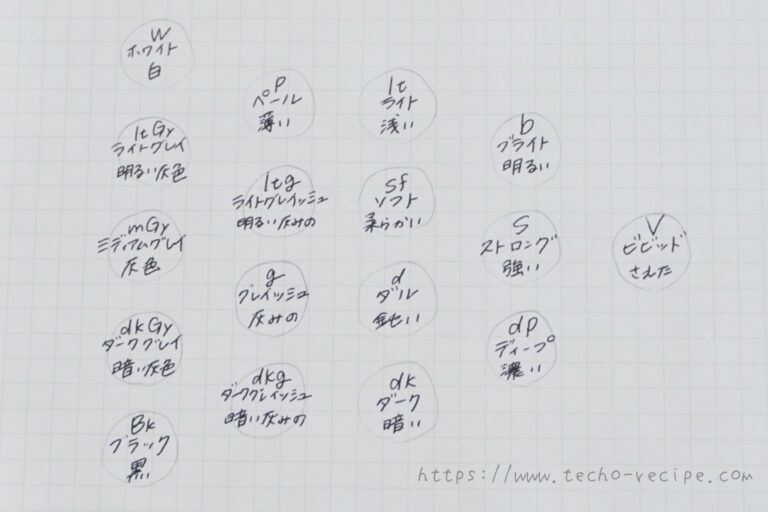 W
ホワイト
白
ltGy
ライトグレイ
明るい灰色
mGy
ミディアムグレイ
灰色
dkGy
ダークグレイ
暗い灰色
Bk
ブラック
黒
p
ペール
薄い
ltg
ライトグレイッシュ
明るい灰みの
g
グレイッシュ
灰みの
dkg
ダークグレイッシュ
暗い灰みの
lt
ライト
浅い
sf
ソフト
柔らかい
d
ダル
鈍い
dk
ダーク
暗い
b
ブライト
明るい
S
ストロング
強い
dp
ディープ
濃い
V
ビビッド
さえた
https://www.techo-recipe.com